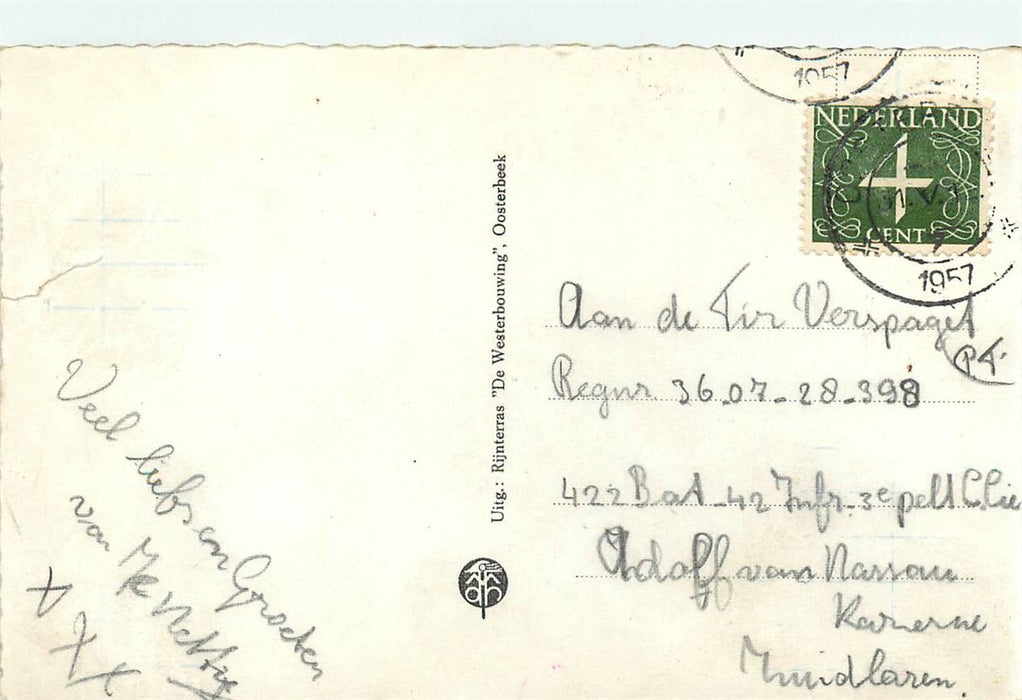 Veel liefs en Groeten
van
X X X
Uitg.: Rijnterras "De Westerbouwing", Oosterbeek
1957
NEDERLAND
4
CENT
1957
Aan de Tir Verspaget
Regnr 36-07-28-398
422 Bat 42 Infr 3e pelt
Adolff van Nassau
Kazerne
Zuidlaren